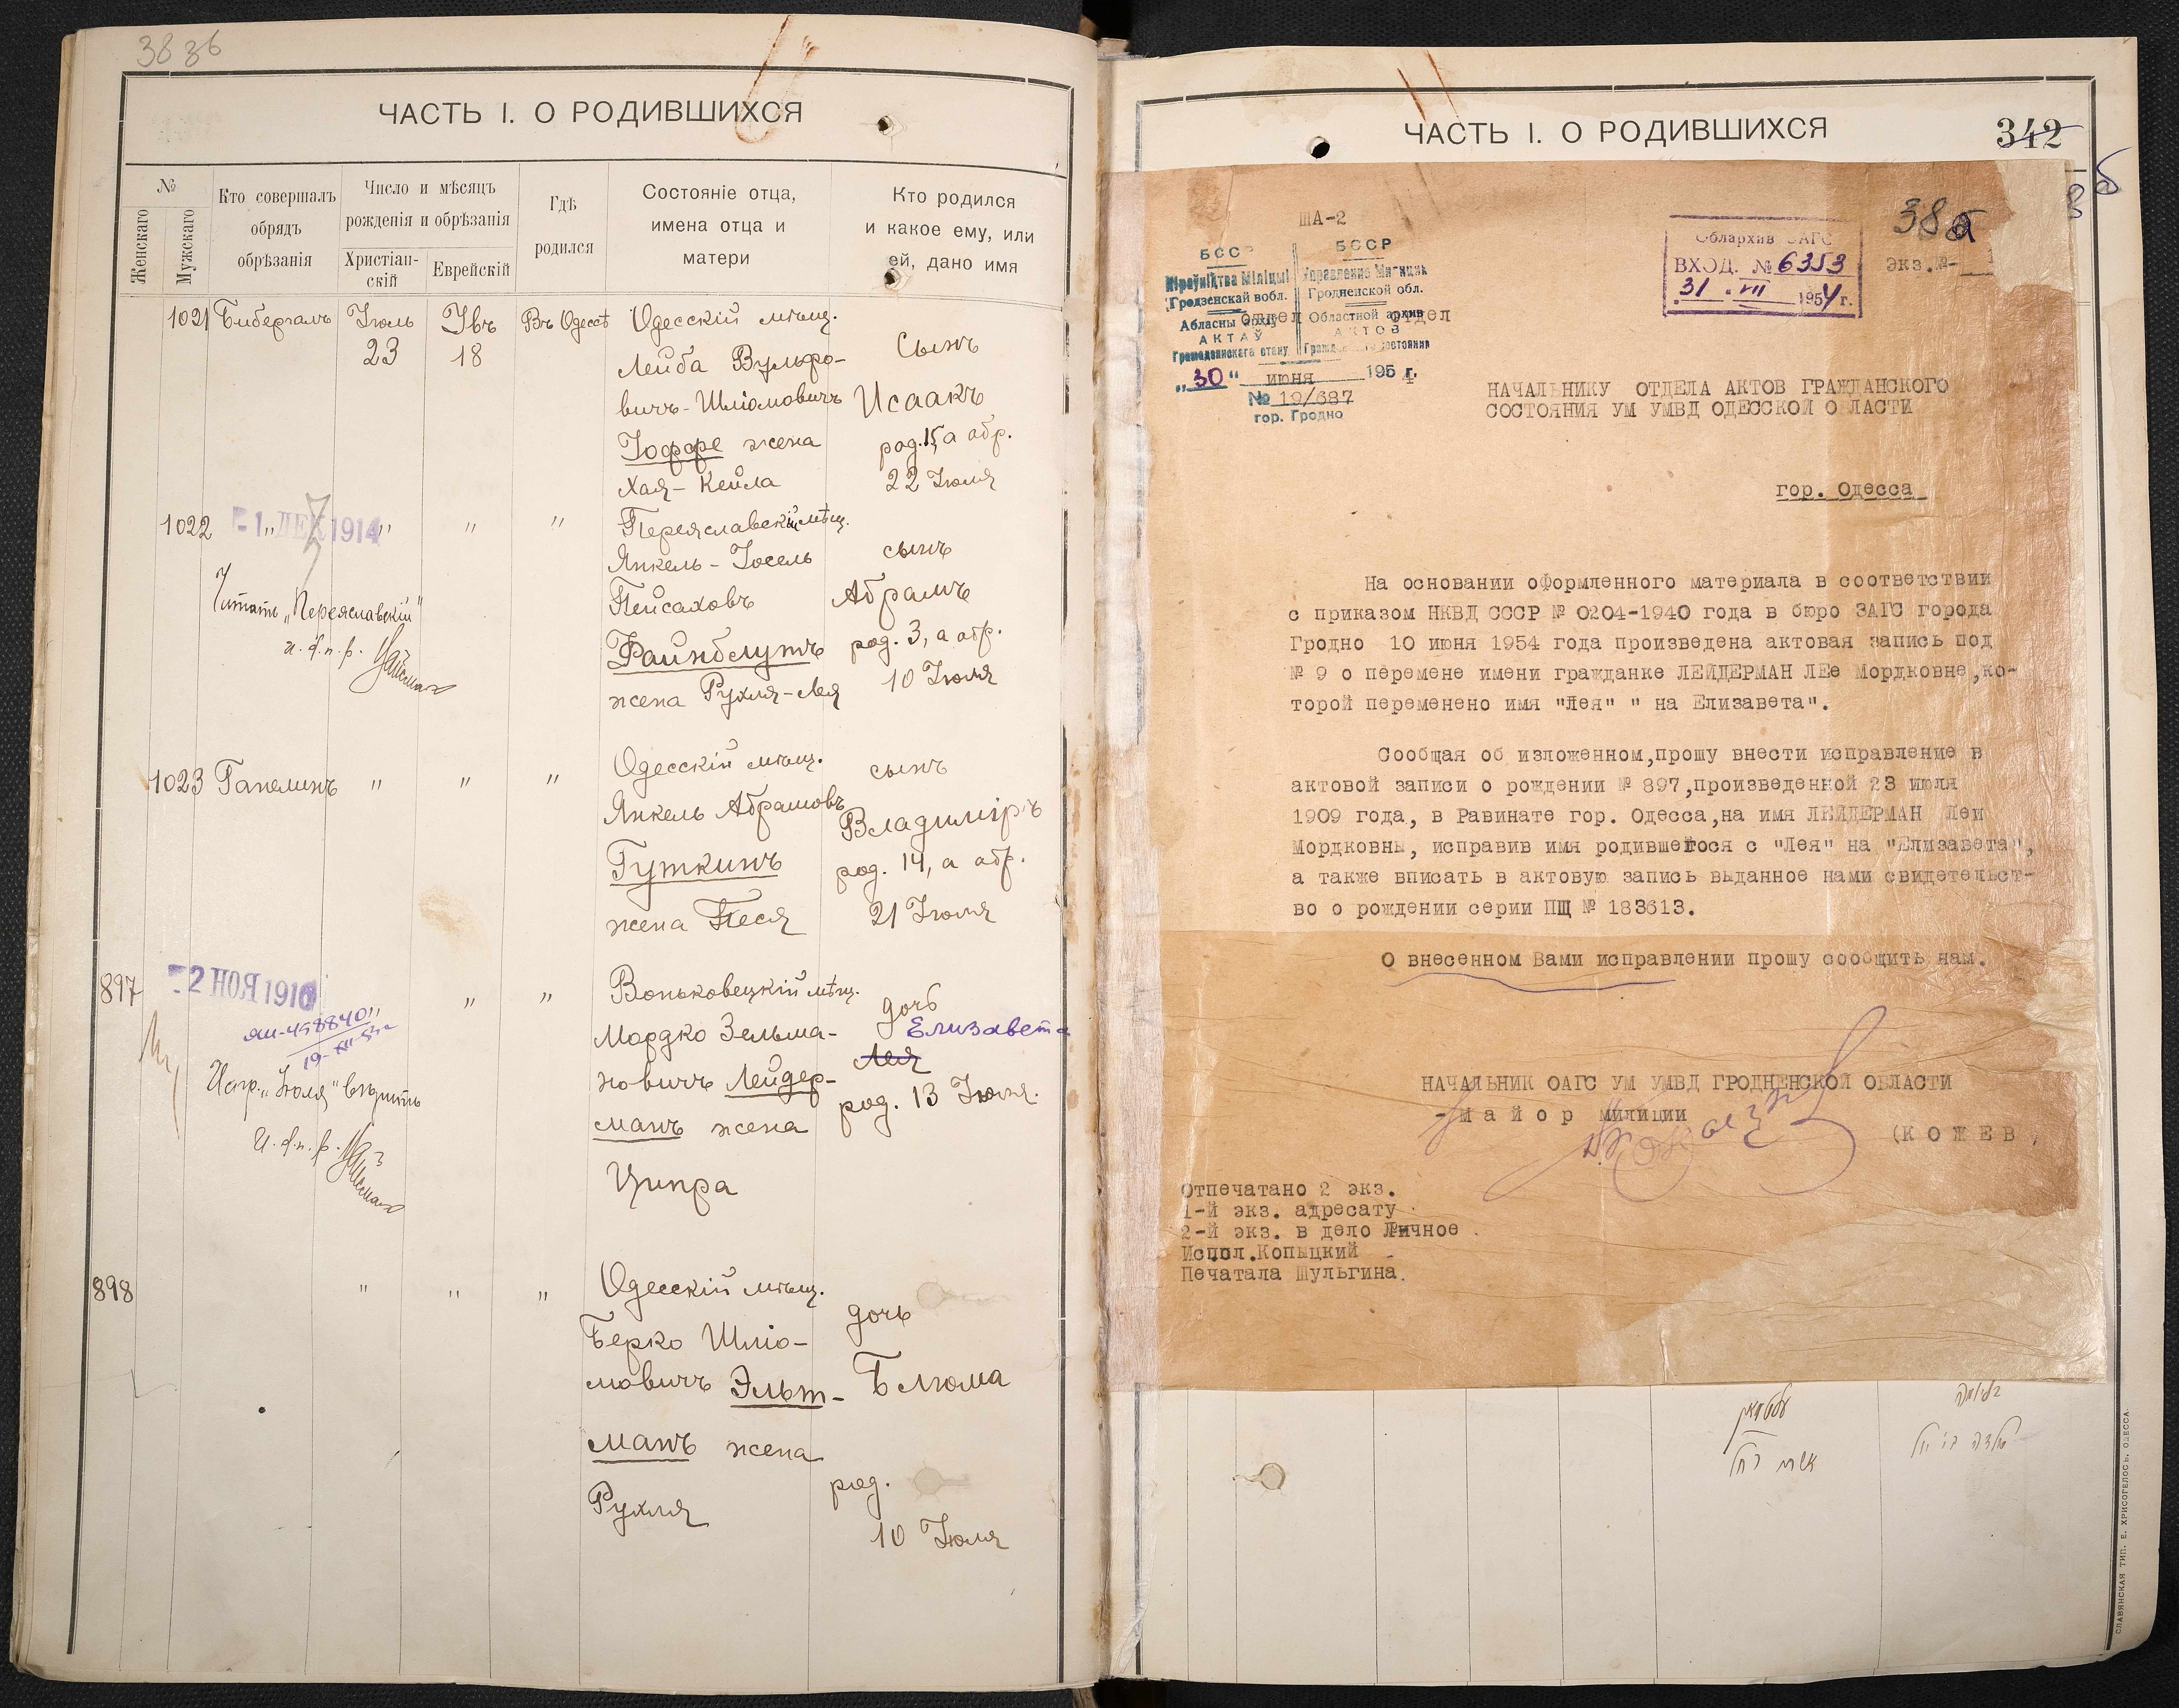 38 зб
ЧАСТЬ I. О РОДИВШИХСЯ
№
Женскаго
Мужскаго
Кто совершалъ
обрядъ
обрѣзанія
Число и мѣсяцъ
рожденія и обрѣзанія
Христіан-
скій
Еврейскій
Гдѣ
родился
Состояніе отца,
имена отца и
матери
Кто родился
и какое ему, или
ей, дано имя
1021 Бибергалъ Іюль 23 Увъ 18 Въ Одессѣ
Одесскій мѣщ.
Лейба Вульфо-
вичъ-Шліомовичъ
Іоффе жена
Хая-Кейла
Сынъ
Исаакъ
род. 15, а обр.
22 Іюля
1022 " " " "
- 1. ДЕК 1914
Читать „Переяславскій"
и. д. п. р.
Переяславскій мѣщ.
Янкель-Іосель
Пейсаховъ
Файнблутъ
жена Рухля-Лея
сынъ
Абрамъ
род. 3, а обр.
10 Іюля
1023 Гапелинъ " " "
Одесскій мѣщ.
Янкель Абрамовъ
Гуткинъ
жена Песя
сынъ
Владиміръ
род. 14, а обр.
21 Іюля
897 " " "
- 2 НОЯ 1910
ЯШ-458840
Испр. „Іюля" вѣрить
И. д. п. р.
Воньковецкій мѣщ.
Мордко Зельма-
новичъ Лейдер-
манъ жена
Ципра
дочь
Елизавета
Лея
род. 13 Іюля.
898 " " "
Одесскій мѣщ.
Берко Шліо-
мовичъ Эльт-
манъ жена
Рухля
дочь
Блюма
род.
10 Іюля
ЧАСТЬ I. О РОДИВШИХСЯ
342
ША-2
БССР
Кіраўніцтва Міліцыі
Гродзенскай вобл.
Абласны архіў
АКТАЎ
Грамадзянскага стану
БССР
Управление Милиции
Гродненской обл.
Областной архив
АКТОВ
Гражданского состояния
отдел отдел
„30" июня 1954 г.
№ 19/687
гор. Гродно
Облархив ЗАГС
ВХОД. № 6353
31 . VII 1954 г.
38 а
экз.№-
НАЧАЛЬНИКУ ОТДЕЛА АКТОВ ГРАЖДАНСКОГО
СОСТОЯНИЯ УМ УМВД ОДЕССКОЙ О ЛАСТИ
гор. Одесса
На основании оформленного материала в соответствии
с приказом НКВД СССР № 0204-1940 года в бюро ЗАГС города
Гродно 10 июня 1954 года произведена актовая запись под
№ 9 о перемене имени гражданке ЛЕЙДЕРМАН ЛЕе Мордковне,ко-
торой переменено имя "Лея" " на Елизавета".
Сообщая об изложенном,прошу внести исправление в
актовой записи о рождении № 897,произведенной 23 июля
1909 года, в Равинате гор. Одесса,на имя ЛЕЙДЕРМАН Леи
Мордковны, исправив имя родившегося с "Лея" на "Елизавета",
а также вписать в актовую запись выданное нами свидетельст-
во о рождении серии ПЩ № 183613.
О внесенном Вами исправлении прошу сообщить нам.
НАЧАЛЬНИК ОАГС УМ УМВД ГРОДНЕНСКОЙ ОБЛАСТИ
-М а й о р милиции
(К О Ж Е В
Отпечатано 2 экз.
1-й экз. адресату
2-й экз. в дело Личное
Испол.Копыцкий
Печатала Шульгина.
СЛАВЯНСКАЯ ТИП. Е. ХРИСОГЕЛОСЪ. ОДЕССА.